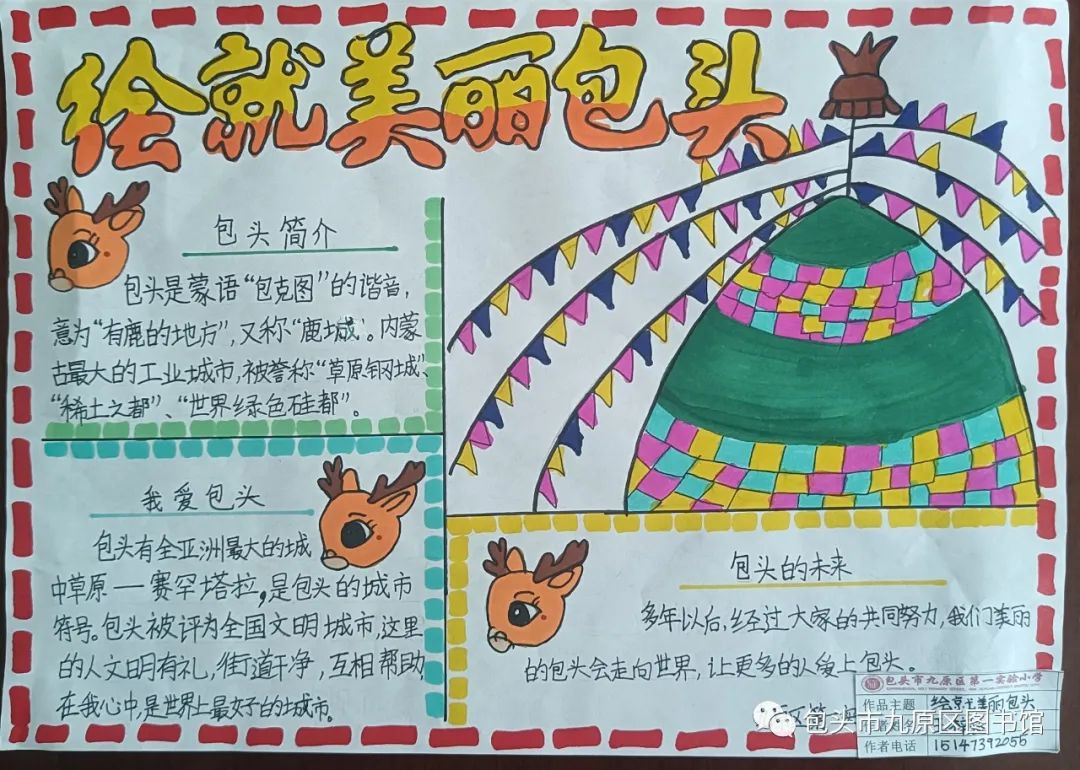 绘就美丽包头
包头简介
包头是蒙语“包克图”的谐音,
意为“有鹿的地方”,又称“鹿城”。内蒙
古最大的工业城市,被誉称“草原钢城”、
“稀土之都”、“世界绿色硅都”。
我爱包头
包头有全亚洲最大的城
中草原一赛罕塔拉,是包头的城市
符号。包头被评为全国文明城市,这里
的人文明有礼,街道干净,互相帮助,
在我心中,是世界上最好的城市。
包头的未来
多年以后,经过大家的共同努力,我们美丽
的包头会走向世界,让更多的人爱上包头。
包头市九原区第一实验小学
作品主题 绘就美丽包头
包头市九原区图书馆
作者电话 15147392055